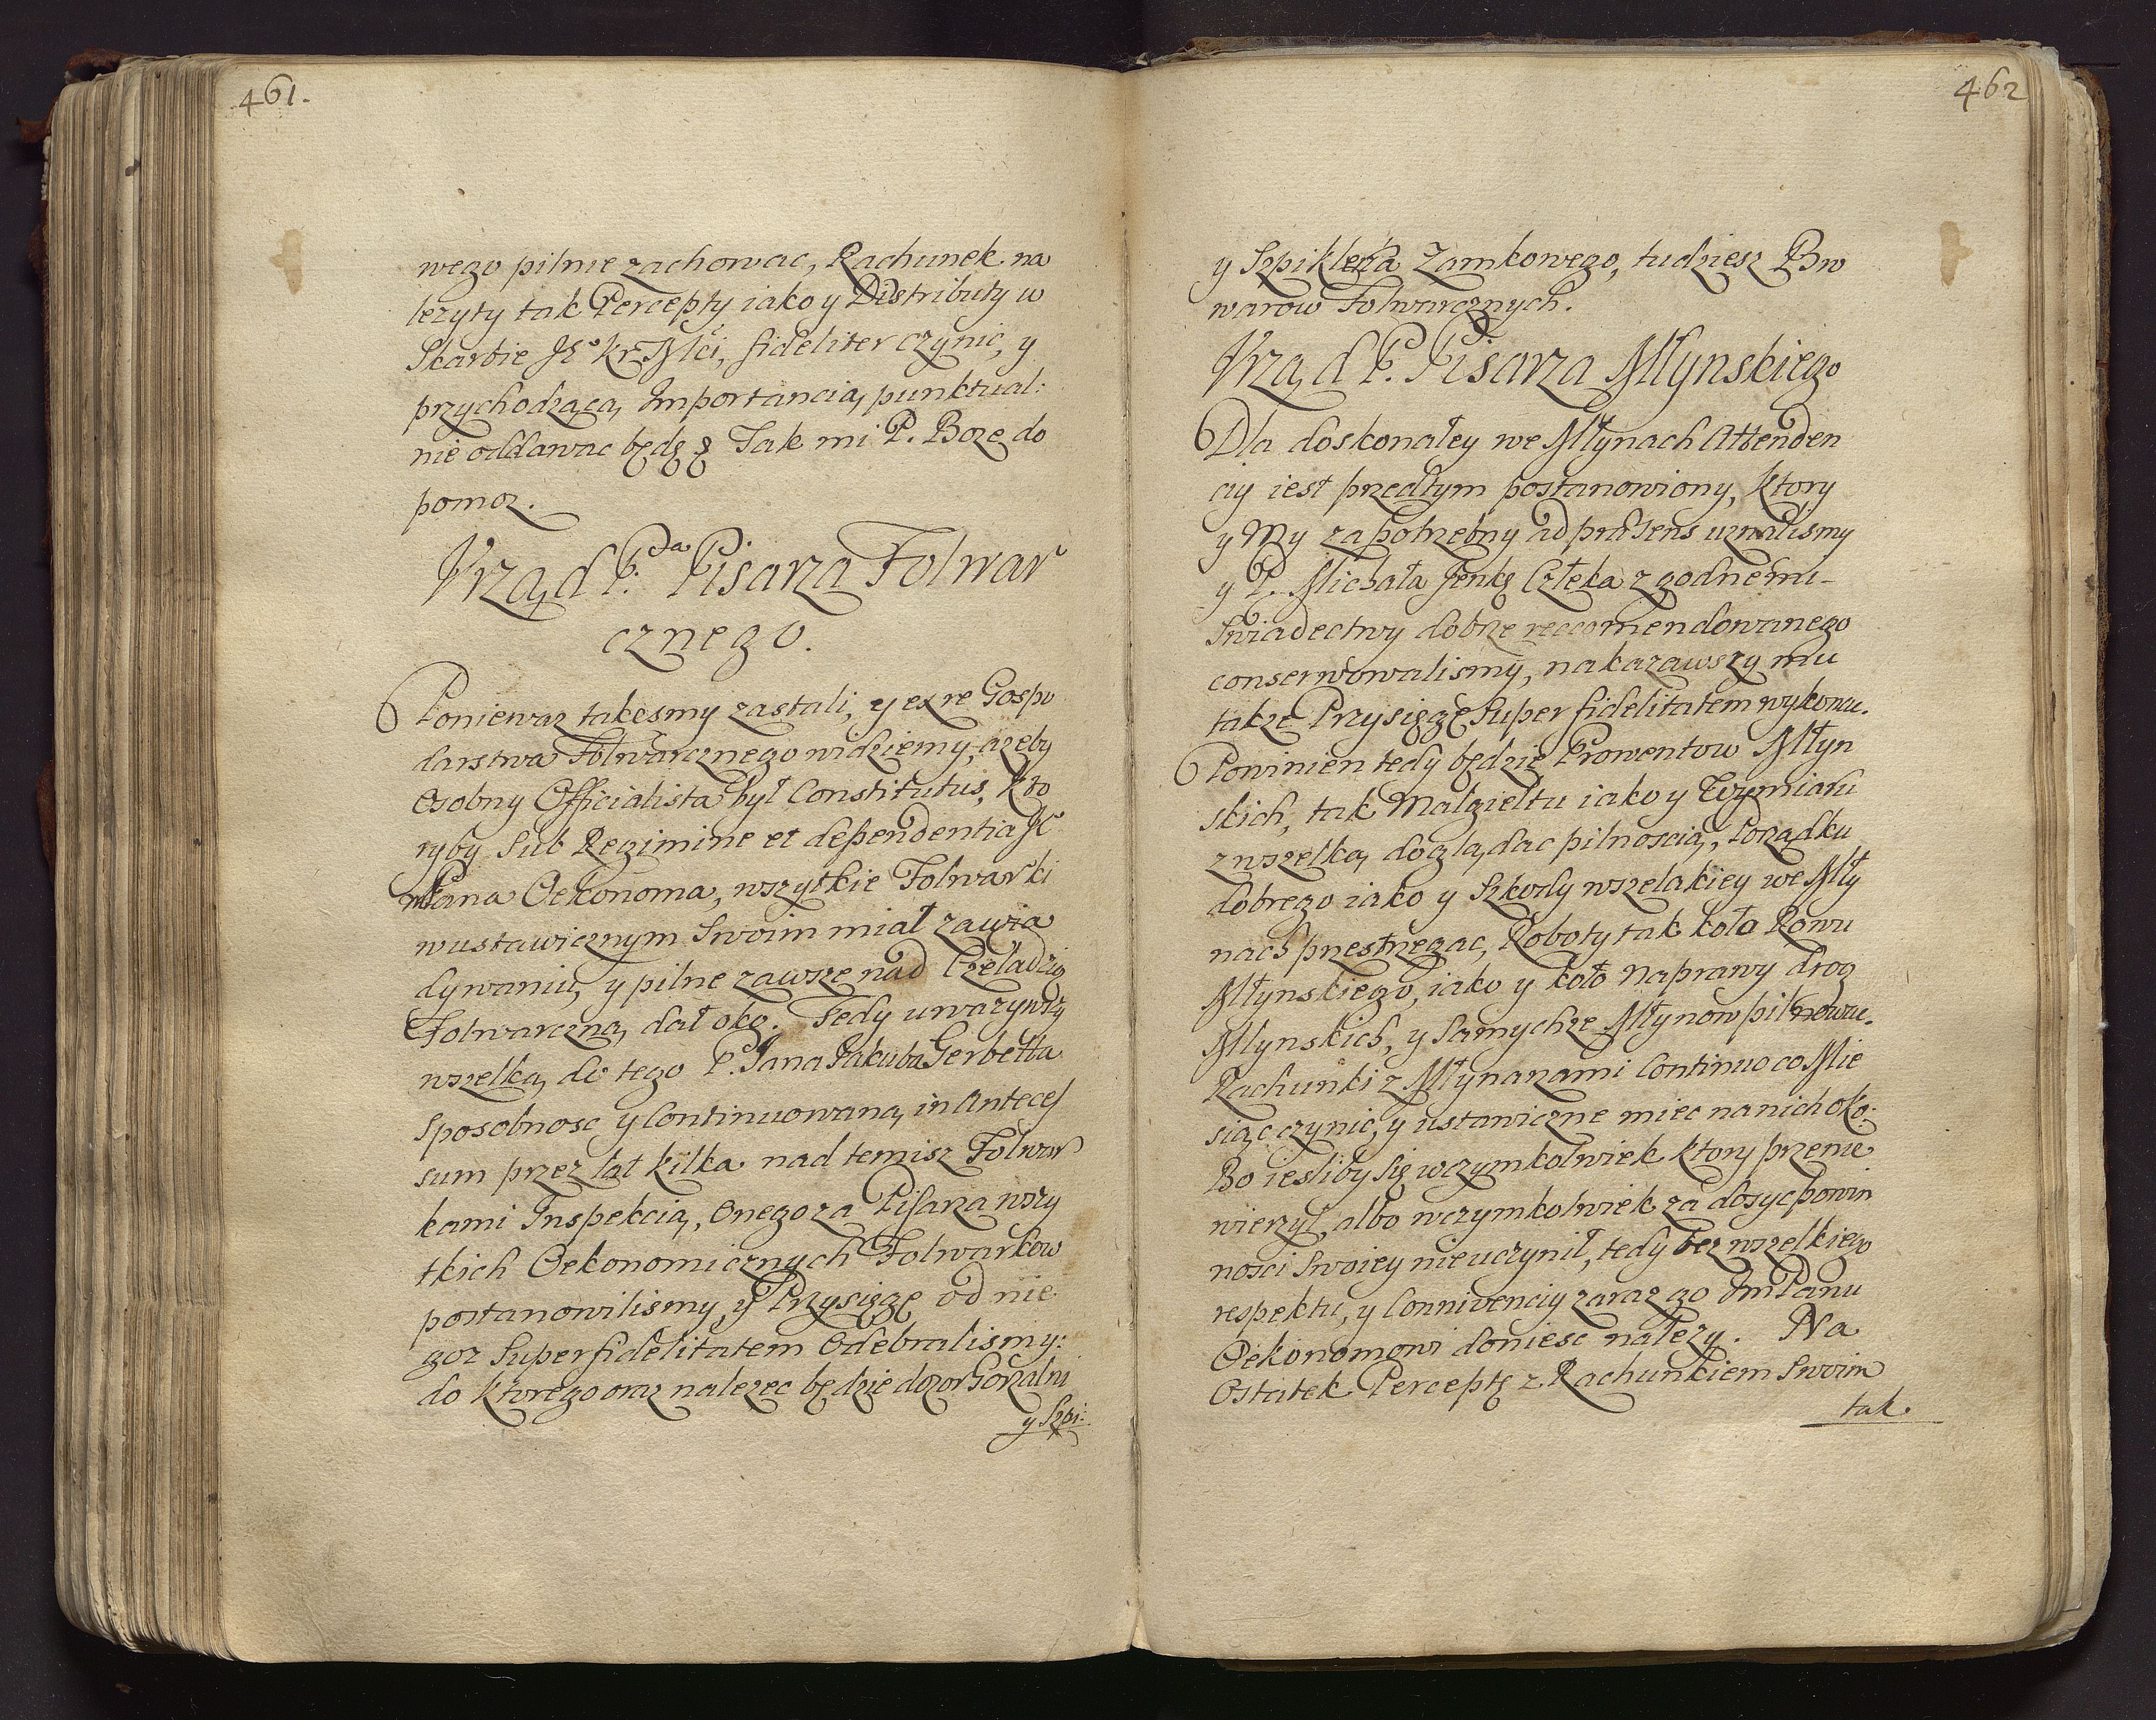 461.
wego pilnie zachowac, Rachunek na
lezyty tak Percepty iako y Distributy w
Skarbie Je° Kr. Mści, fideliter czynic, y
przychodzącą Importancią punktual:
nie oddawac będę Tak mi P. Boze do
pomoz.
Vrząd P. Pisarza Folwar
cznego.
Poniewaz takesmy zastali, y ex re Gospo
darstwa Folwarcznego widziemy, azeby
Osobny Officialista był Constitutus, Kto
ryby Sub Regimine et dependentia Je°
mPana Oekonoma, wszytkie Folwarki
wustawicznym Swoim miał zawia
dywaniu, y pilne zawsze nad Czeladzią
Folwarczną dał oko. Tedy uwazywszy
wszelką do tego P. Jana Jakuba Gerbetta
Sposobnosc y Continuowaną in Anteces
sum przez lat kilka nad temisz Folwar
kami Inspekcią, Onego za Pisarza wszy
tkich Oekonomicznych Folwarkow
postanowilismy, y Przysięgę od nie
goz Super fidelitatem Odebralismy:
do ktorego oraz nalezec będzie dozor Gorzalni
y Szpi:
462
y Szpiklerza Zamkowego, tudziesz Bro
warow Folwarcznych.
Vrząd P. Pisarza Młynskiego
Dla doskonałey we Młynach Attenden
ciy iest przedtym postanowiony, Ktory
y My za potrzebny ad præsens uznalismy
y P. Michała Jenkę Człeka zgodnemi
Swiadectwy dobrze reccomendowanego
conserwowalismy, nakazawszy mu
takze Przysięgę Super fidelitatem wykonac.
Powinien tedy będzie Prowentow Młyn
skich, tak Malgieltu iako y Wymiaru
z wszelką doglądac pilnoscią, Porządku
dobrego iako y Szkody wszelakiey we Mły
nach przestrzegac, Roboty tak koło Rowu
Młynskiego, iako y koło Naprawy drog
Młynskich, y Samychze Młynow pilnowac.
Rachunki z Młynarzami Continuo co Mie
siąc czynic, y ustawiczne miec na nich oko:
Bo iesliby Się wczymkolwiek ktory przenie
wierzył, albo wczymkolwiek za dosyc powin
nosci Swoiey nieuczynił, tedy bez wszelkiego
respektu, y Connivenciy zaraz go ImPanu
Oekonomowi doniesc nalezy. Na
Ostatek Perceptę z Rachunkiem Swoim
tak